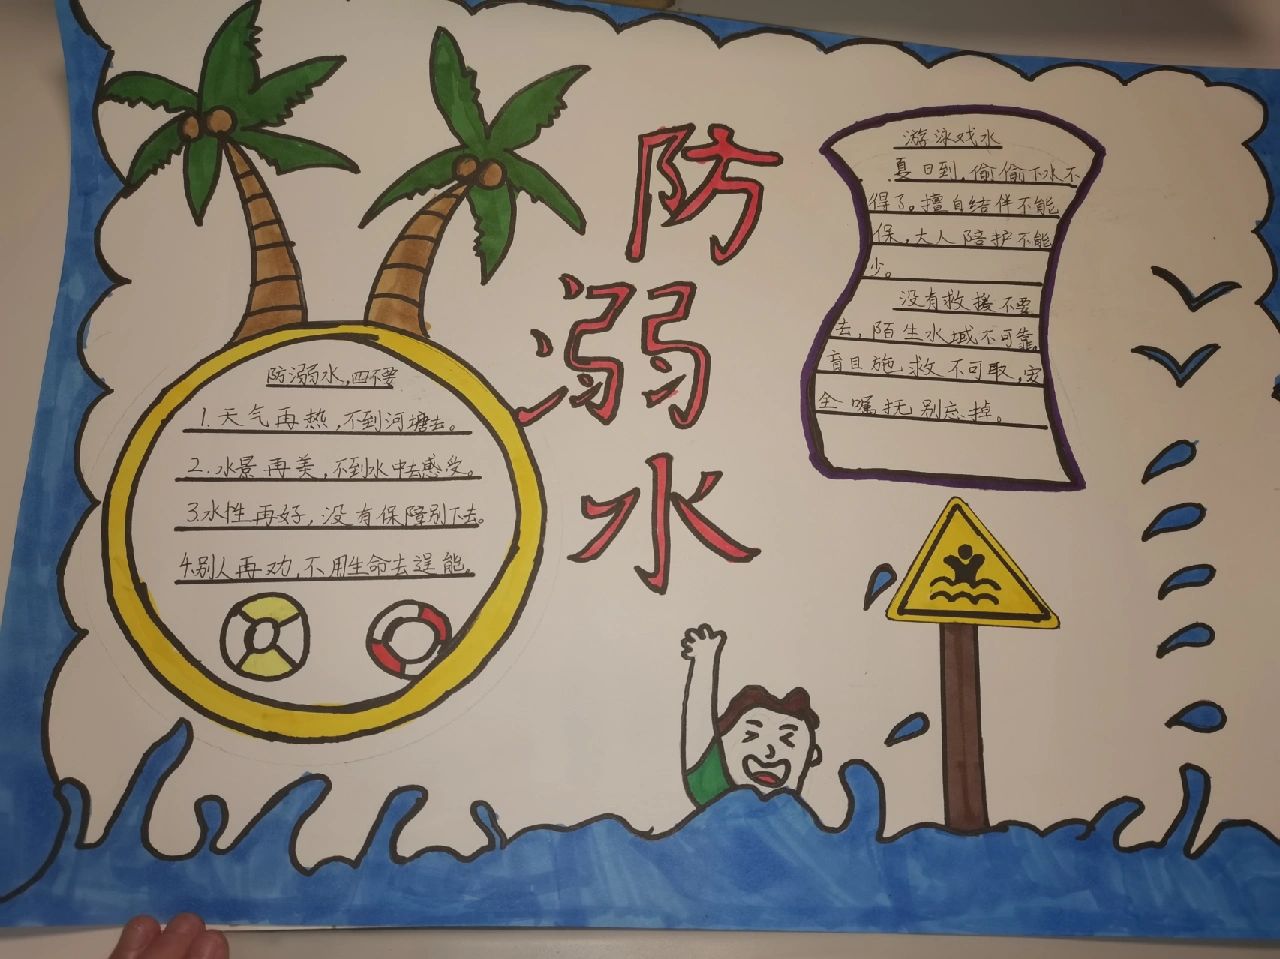 防溺水
防溺水，四不要
1.天气再热，不到河塘去。
2.水景再美，不到水中去感受。
3.水性再好，没有保障别下去。
4.别人再劝，不用生命去逞能。
游泳戏水
夏日到，偷偷下水不
得了。擅自结伴不能
保，大人陪护不能
少。
没有救援不要
去，陌生水域不可靠，
盲目施救不可取，安
全嘱托别忘掉。